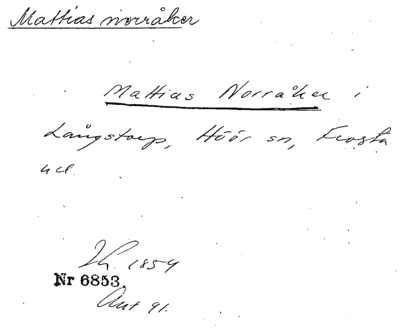 Mattias norråker
Mattias Norråker i
Långstorp, Höör sn, Frosta
hd.
1854
Nr 6853.
Ant 91.